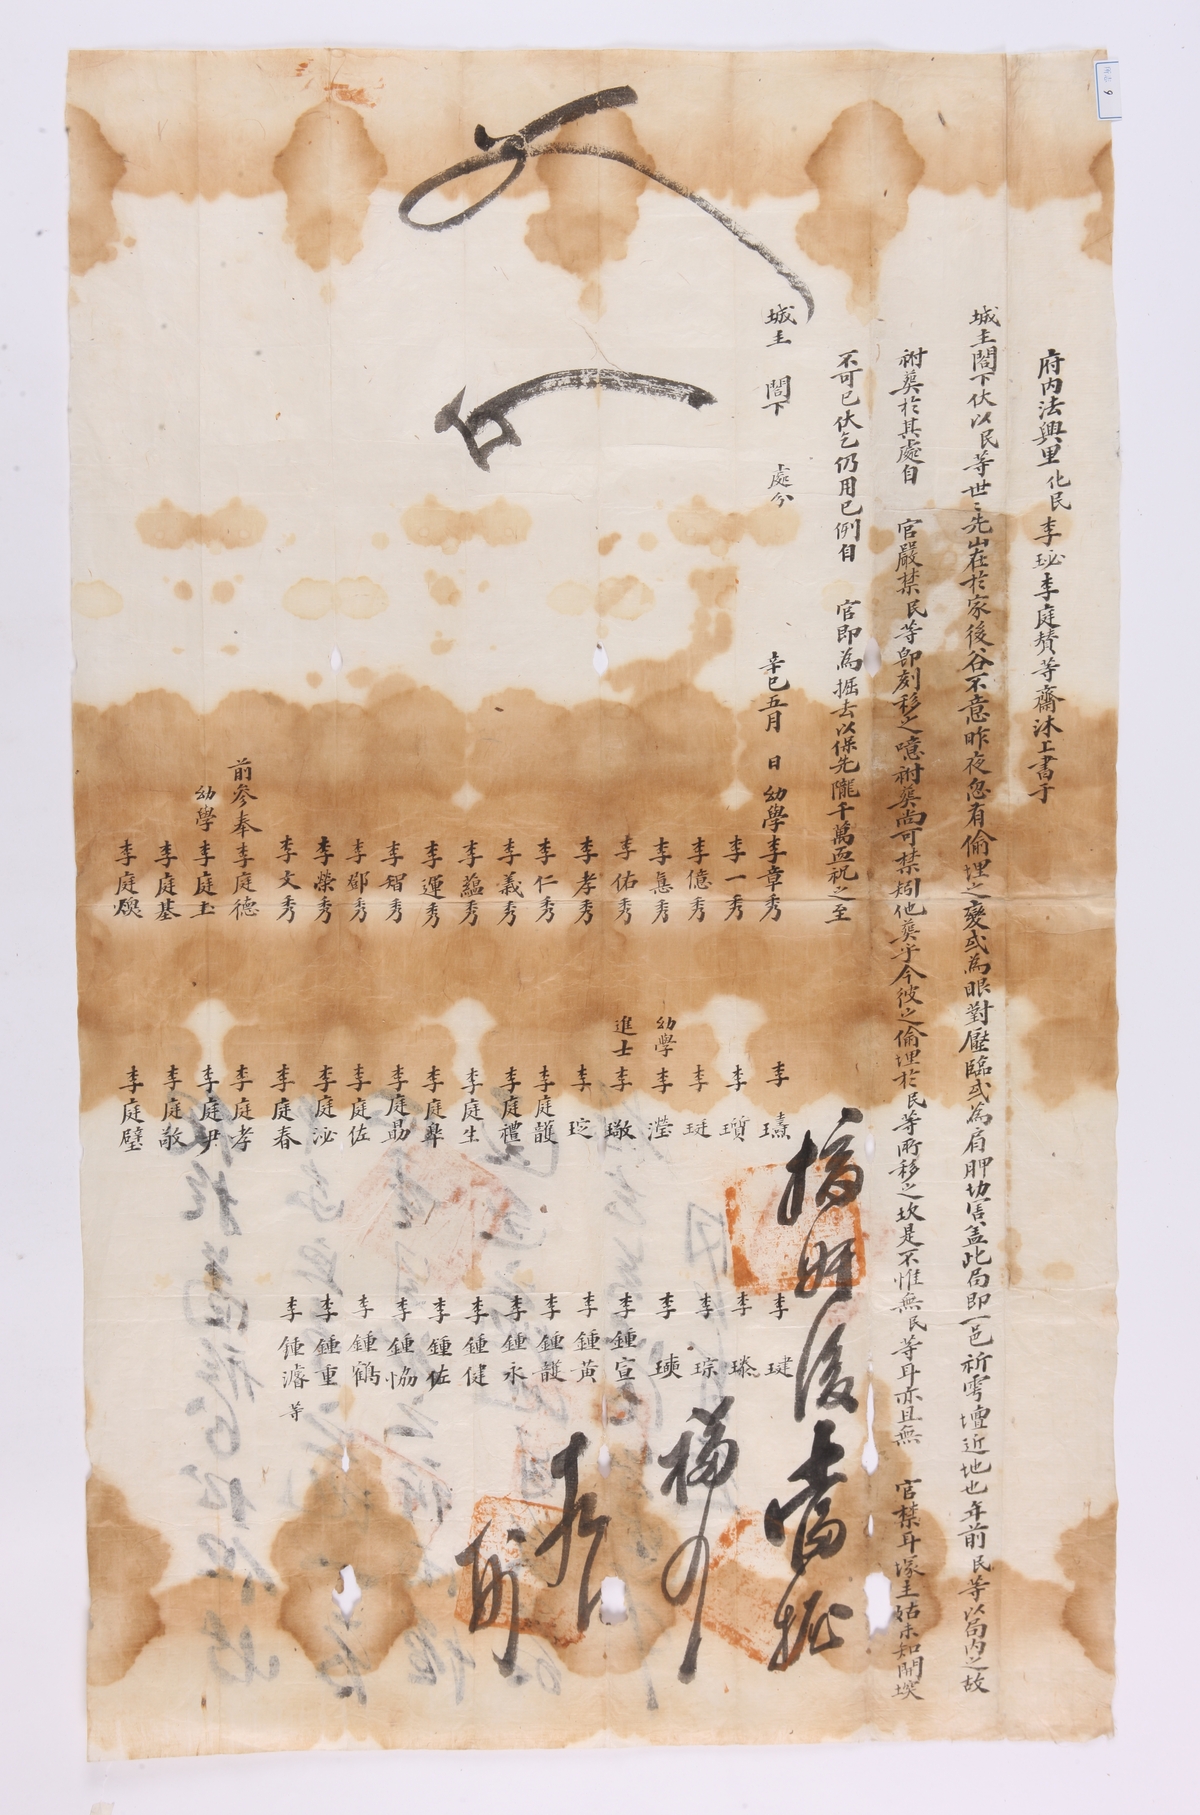 府內法興里化民李珌李庭賛等齋沐上書于
城主閤下伏以民等世〻先山在於家後谷不意昨夜忽有偷埋之變或為眼對壓臨或為肩胛切害盖此局即一邑祈雩壇近地也年前民等以局內之故
祔葬於其處自 官嚴禁民等卽刻移之噫祔葬尚可禁矧他葬乎今彼之偷埋於民等所移之坎是不惟無民等耳亦且無 官禁耳塚主姑未知開堗
不可已伏乞仍用已例自 官即為掘去以保先隴千萬至祝之至
城主 閤下 處分
辛巳五月 日 幼學李章秀
李一秀
李億秀
李憙秀
李佑秀
李孝秀
李仁秀
李義秀
李蘊秀
李運秀
李智秀
李鄒秀
李榮秀
李文秀
前參奉李庭德
幼學李庭玉
李庭基
李庭煥
李瓙
李瓆
李珽
幼學 李瀅
進士 李璥
李琔
李庭頀
李庭禮
李庭生
李庭皐
李庭勗
李庭佐
李庭泌
李庭春
李庭孝
李庭尹
李庭敬
李庭璧
李琎
李瑧
李琮
李𤩽
李鍾宣
李鍾黃
李鍾頀
李鍾永
李鍾健
李鍾佐
李鍾恊
李鍾鶴
李鍾重
李鍾濬 等
摘奸後當掘